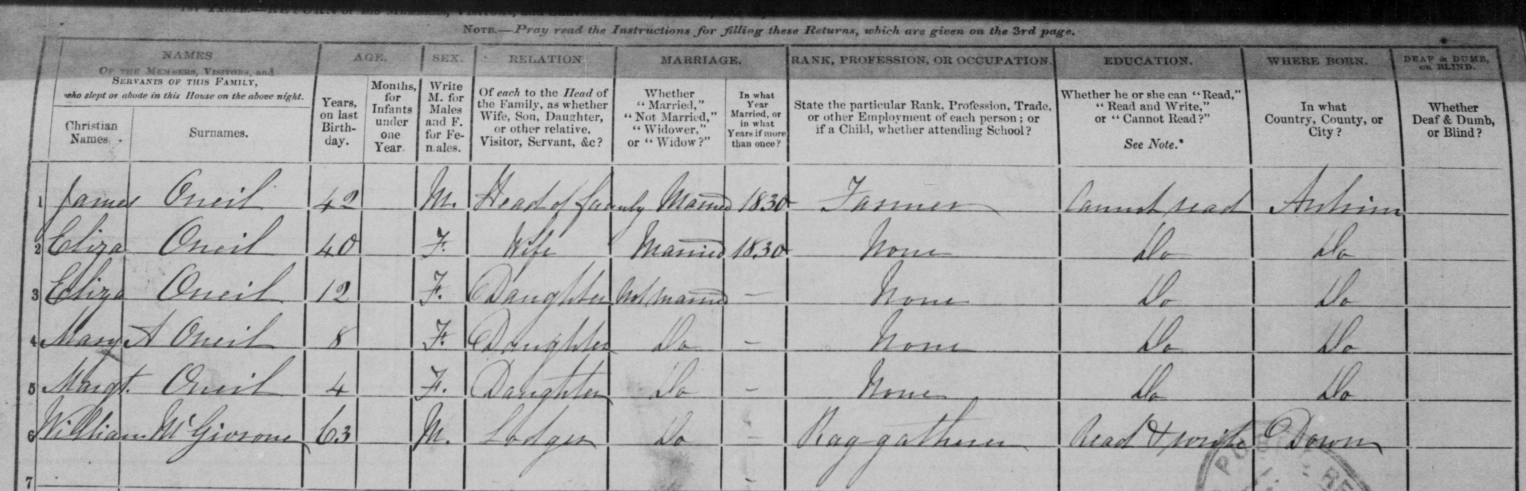 NOTE.—Pray read the Instructions for filling these Returns, which are given on the 3rd page.
NAMES OF THE MEMBERS, VISITORS, and SERVANTS OF THIS FAMILY, who slept or abode in this House on the above night. AGE. SEX. RELATION MARRIAGE. RANK, PROFESSION, OR OCCUPATION. EDUCATION. WHERE BORN. DEAF & DUMB, OR BLIND.
Christian Names. Surnames. Years, on last Birthday. Months, for Infants under one Year. Write M. for Males and F. for Females. Of each to the Head of the Family, as whether Wife, Son, Daughter, or other relative, Visitor, Servant, &c? Whether "Married," "Not Married," "Widower," or "Widow?" In what Year Married, or in what Years if more than once? State the particular Rank, Profession, Trade, or other Employment of each person; or if a Child, whether attending School? Whether he or she can "Read," "Read and Write," or "Cannot Read?" See Note.* In what Country, County, or City? Whether Deaf & Dumb, or Blind?
1 James Oneil 42 M. Head of family Married 1830 Farmer Cannot read Antrim
2 Eliza Oneil 40 F. Wife Married 1830 None Do Do
3 Eliza Oneil 12 F. Daughter Not married – None Do Do
4 Mary A Oneil 8 F. Daughter Do – None Do Do
5 Margt. Oneil 4 F. Daughter Do – None Do Do
6 William McGivrone 63 M. Lodger Do – Rag gatherer Read & write Down
7 –